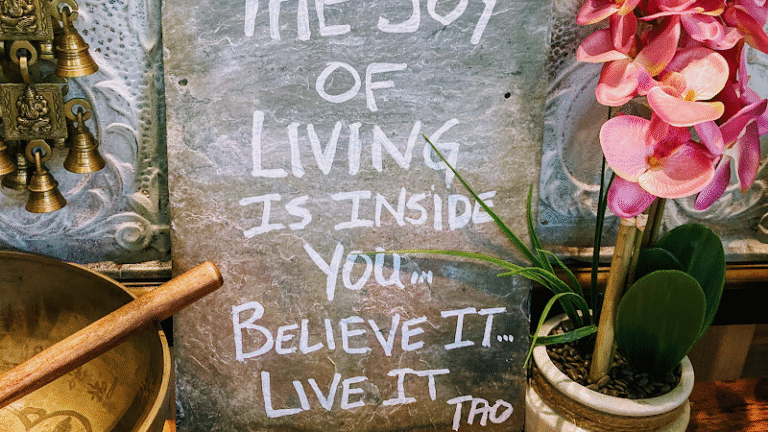 THE JOY
OF
LIVING
IS INSIDE
YOU...
BELIEVE IT...
LIVE IT
TAO